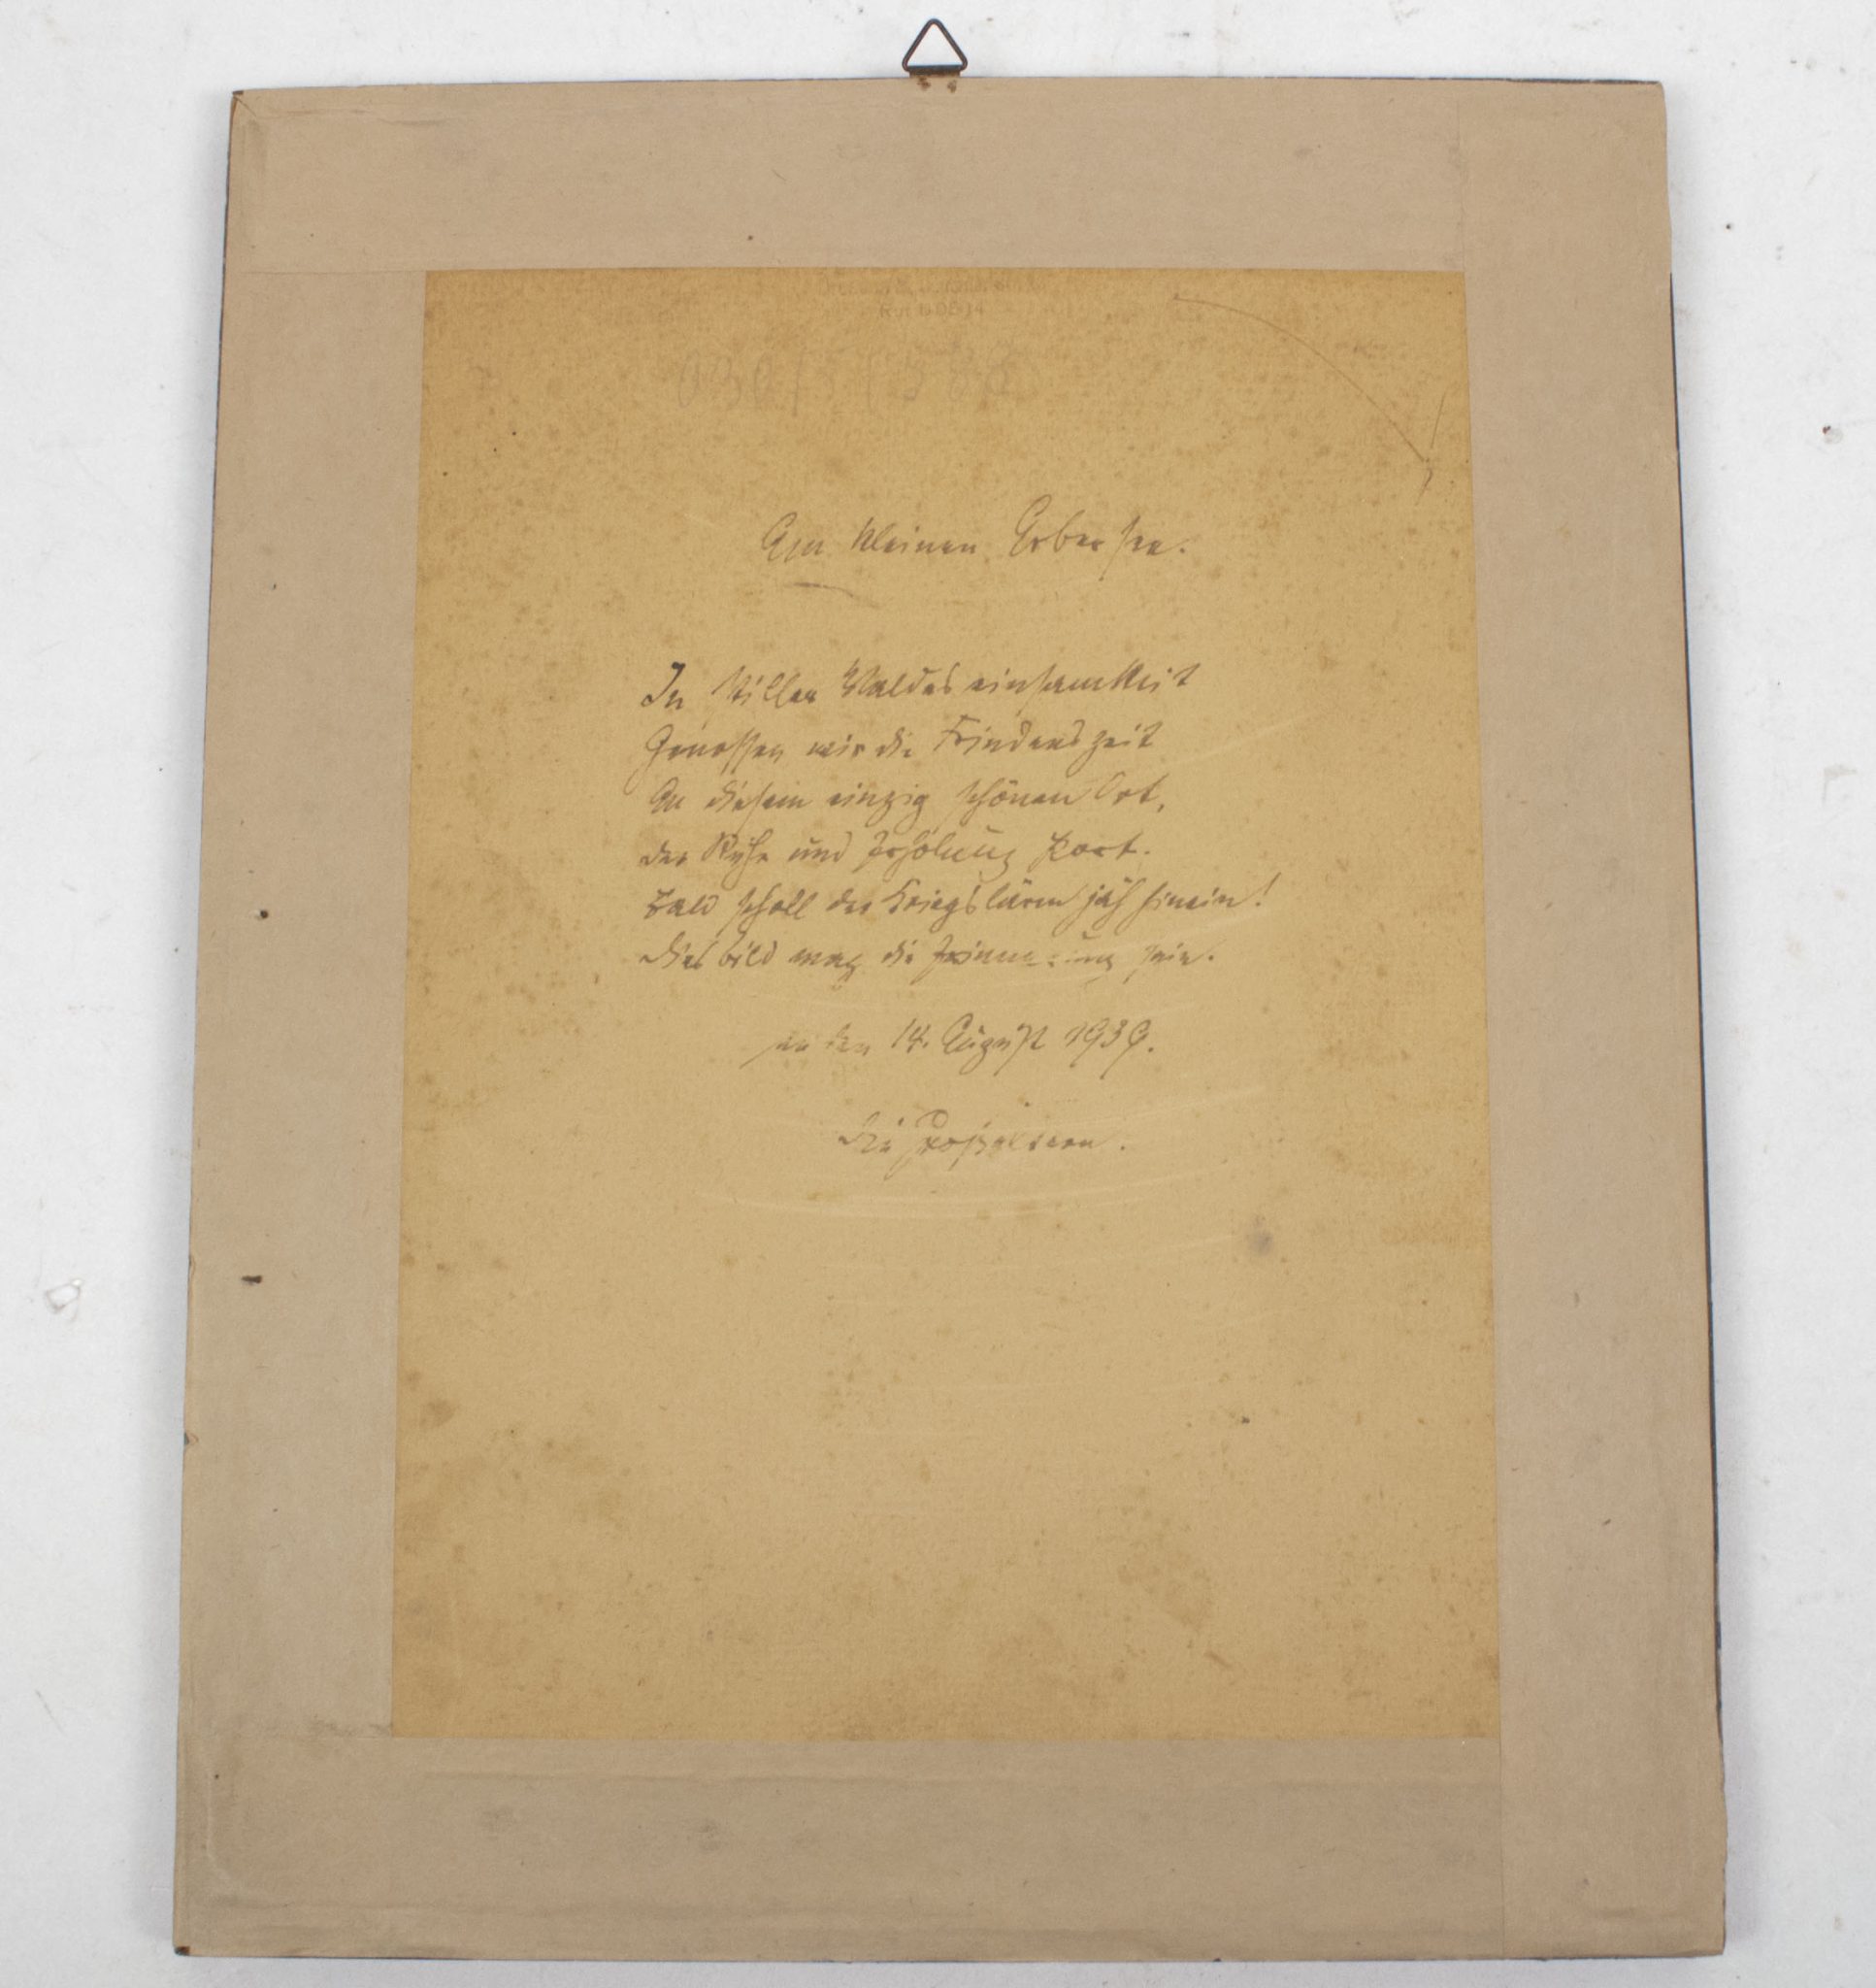 Am kleinen Arbersee.
In stiller Waldeseinsamkeit
Genossen wir die Friedenszeit
An diesem einzig schönen Ort,
der Ruhe und Erholung Port.
Bald scholl der Kriegslärm jäh hinein!
Dies Bild mag die Erinnerung sein.
an den 14. August 1939.
Die Großeltern.